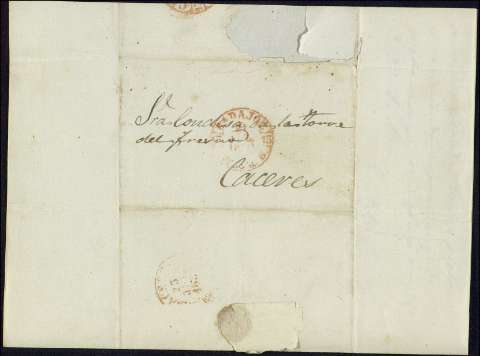 Sra Condesa de la Torre
del Fresno
Caceres
BADAJOZ